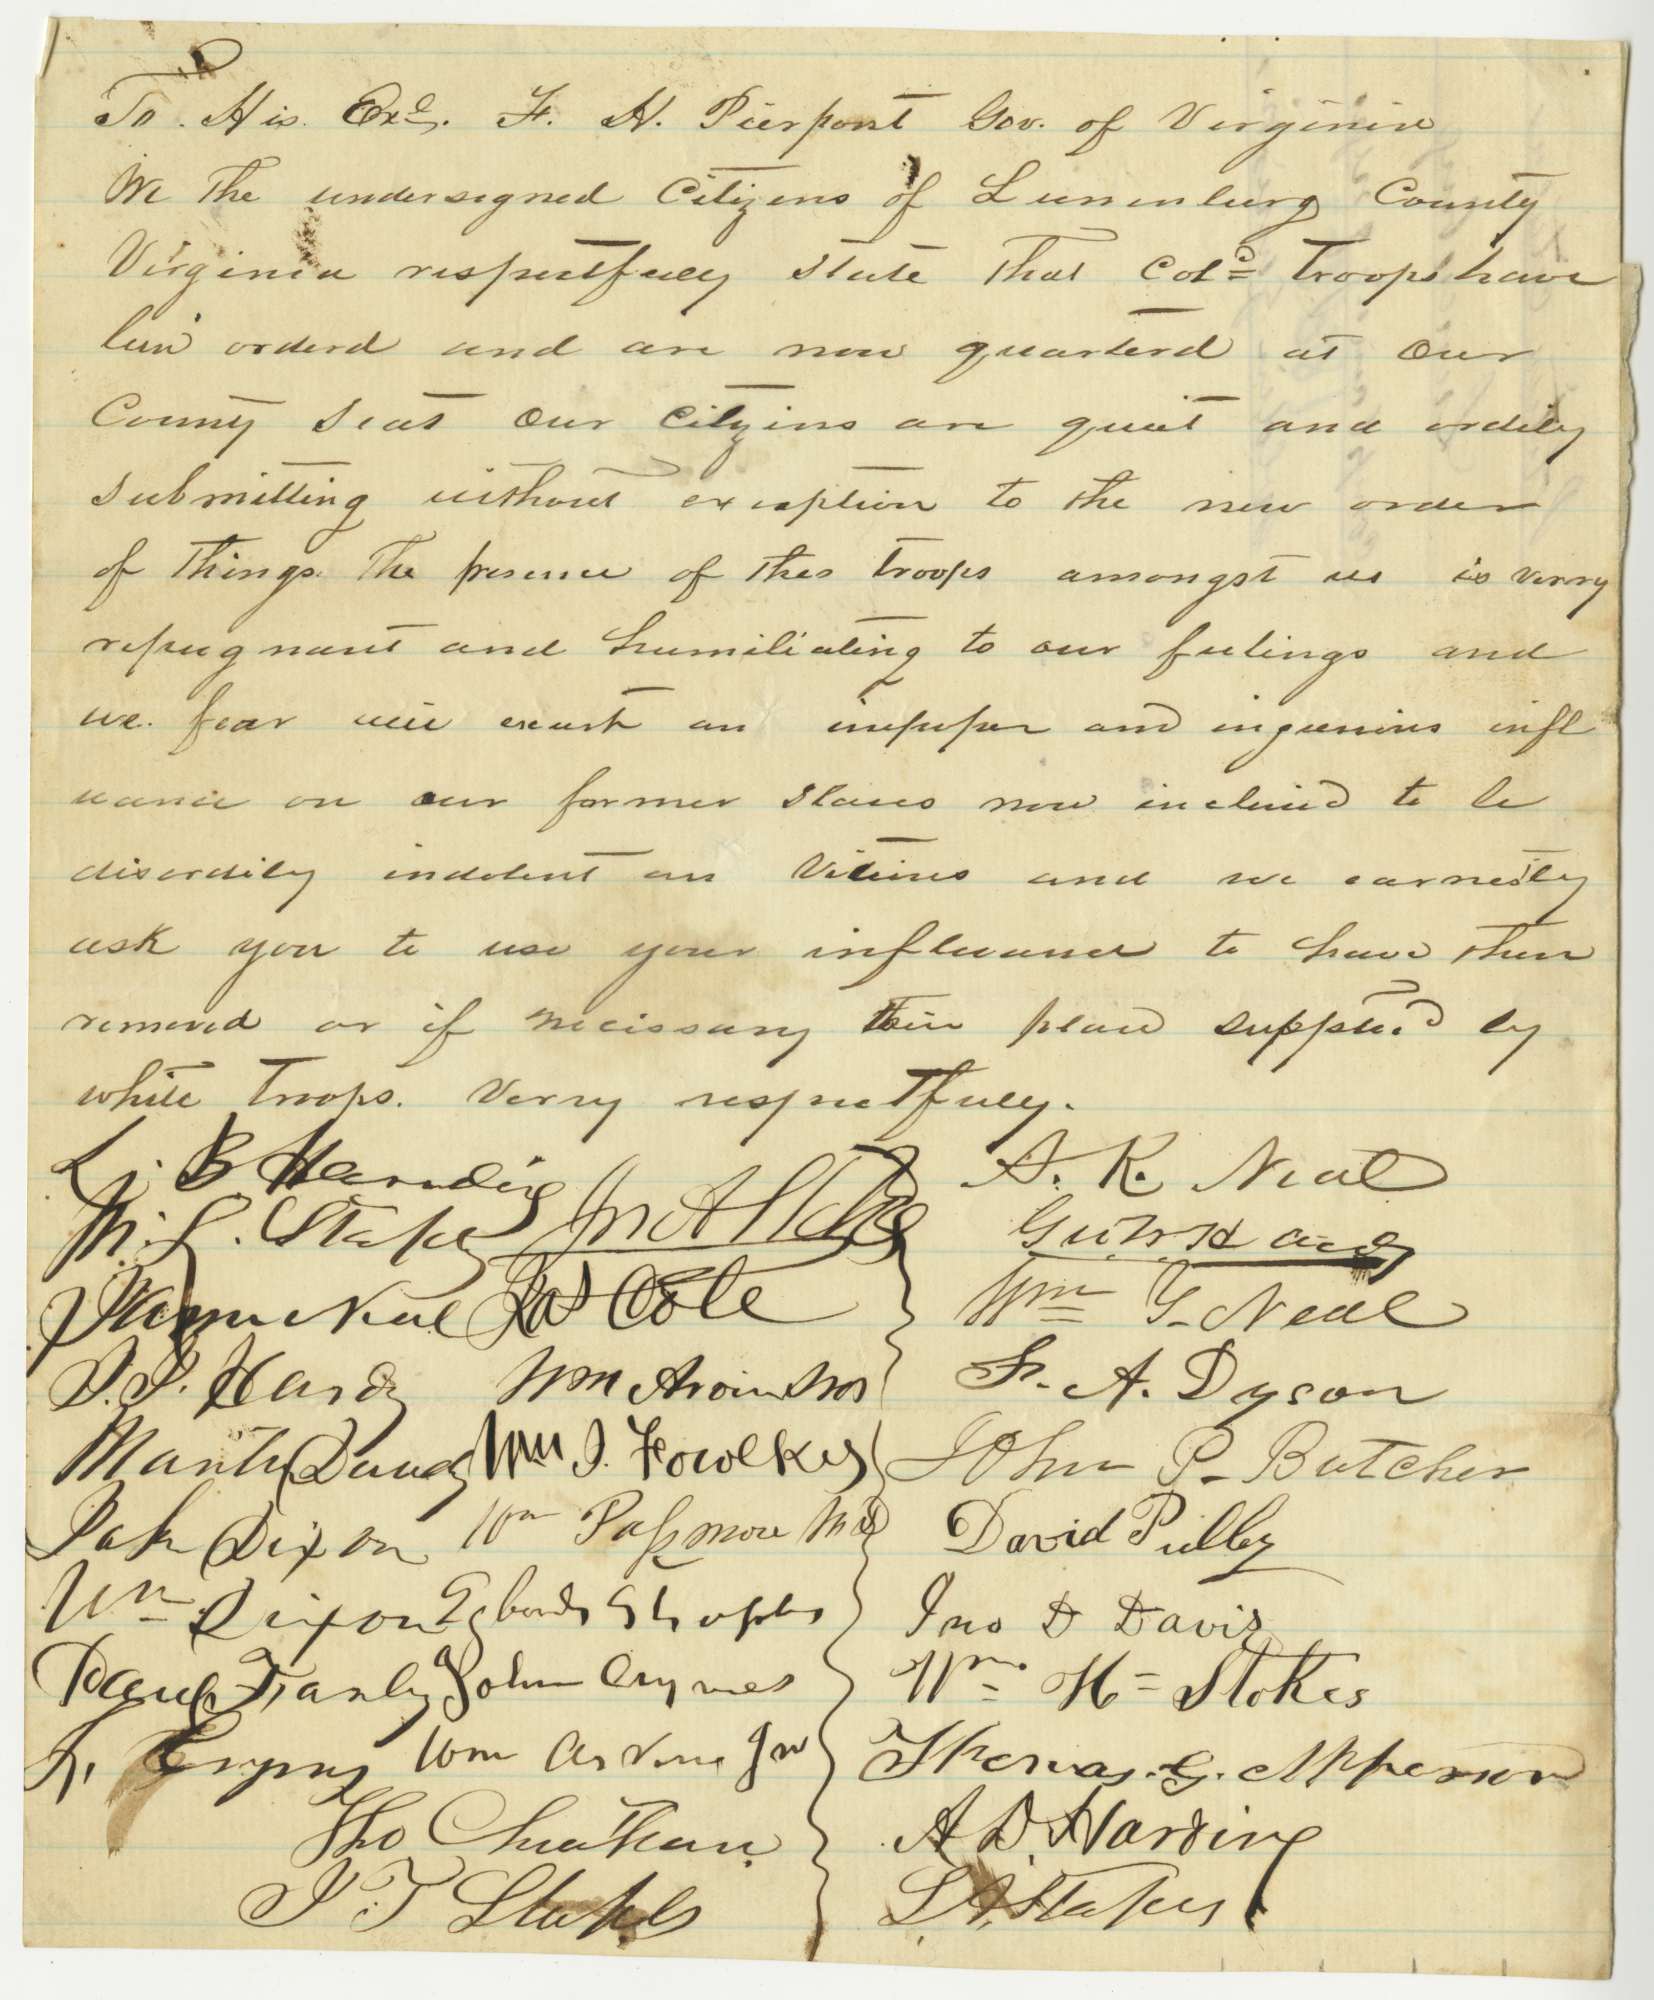 To His Excy. F. H. Pierpont Gov. of Virginia
We the undersigned Citizens of Lunenburg County
Virginia respectfully state that Cold troops have
been orderd and are now quarterd at our
County seat our citizens are quiet and ordily
submitting without exception to the new order
of things. The presence of thes troops amongst us is verry
repugnant and humiliating to our feelings and
we fear will exert an improper and ingenious infl
uance on our former slaves now inclined to be
disordily indolent an vitious and we earnestly
ask you to use your influance to have them
removed or if necissary their place supplied by
white troops. Verry respectfully.
L. B. Hardin S. K. Neal
M. L. Staples Jno A Stokes Hardy
Neal Cole Wm G. Neal
J. J. Hardy Wm F. A. Dyson
Dandy Wm J. Fowlkes John P. Butcher
Dixon Wm Passmore MD David Pulley
Wm Dixon Staples Jno D Davis
John Crymes Wm H Stokes
Crymes Wm Jnr Thomas. G. Apperson
Tho Cheatham A D. Hardine
J. T Staples L A. Staples